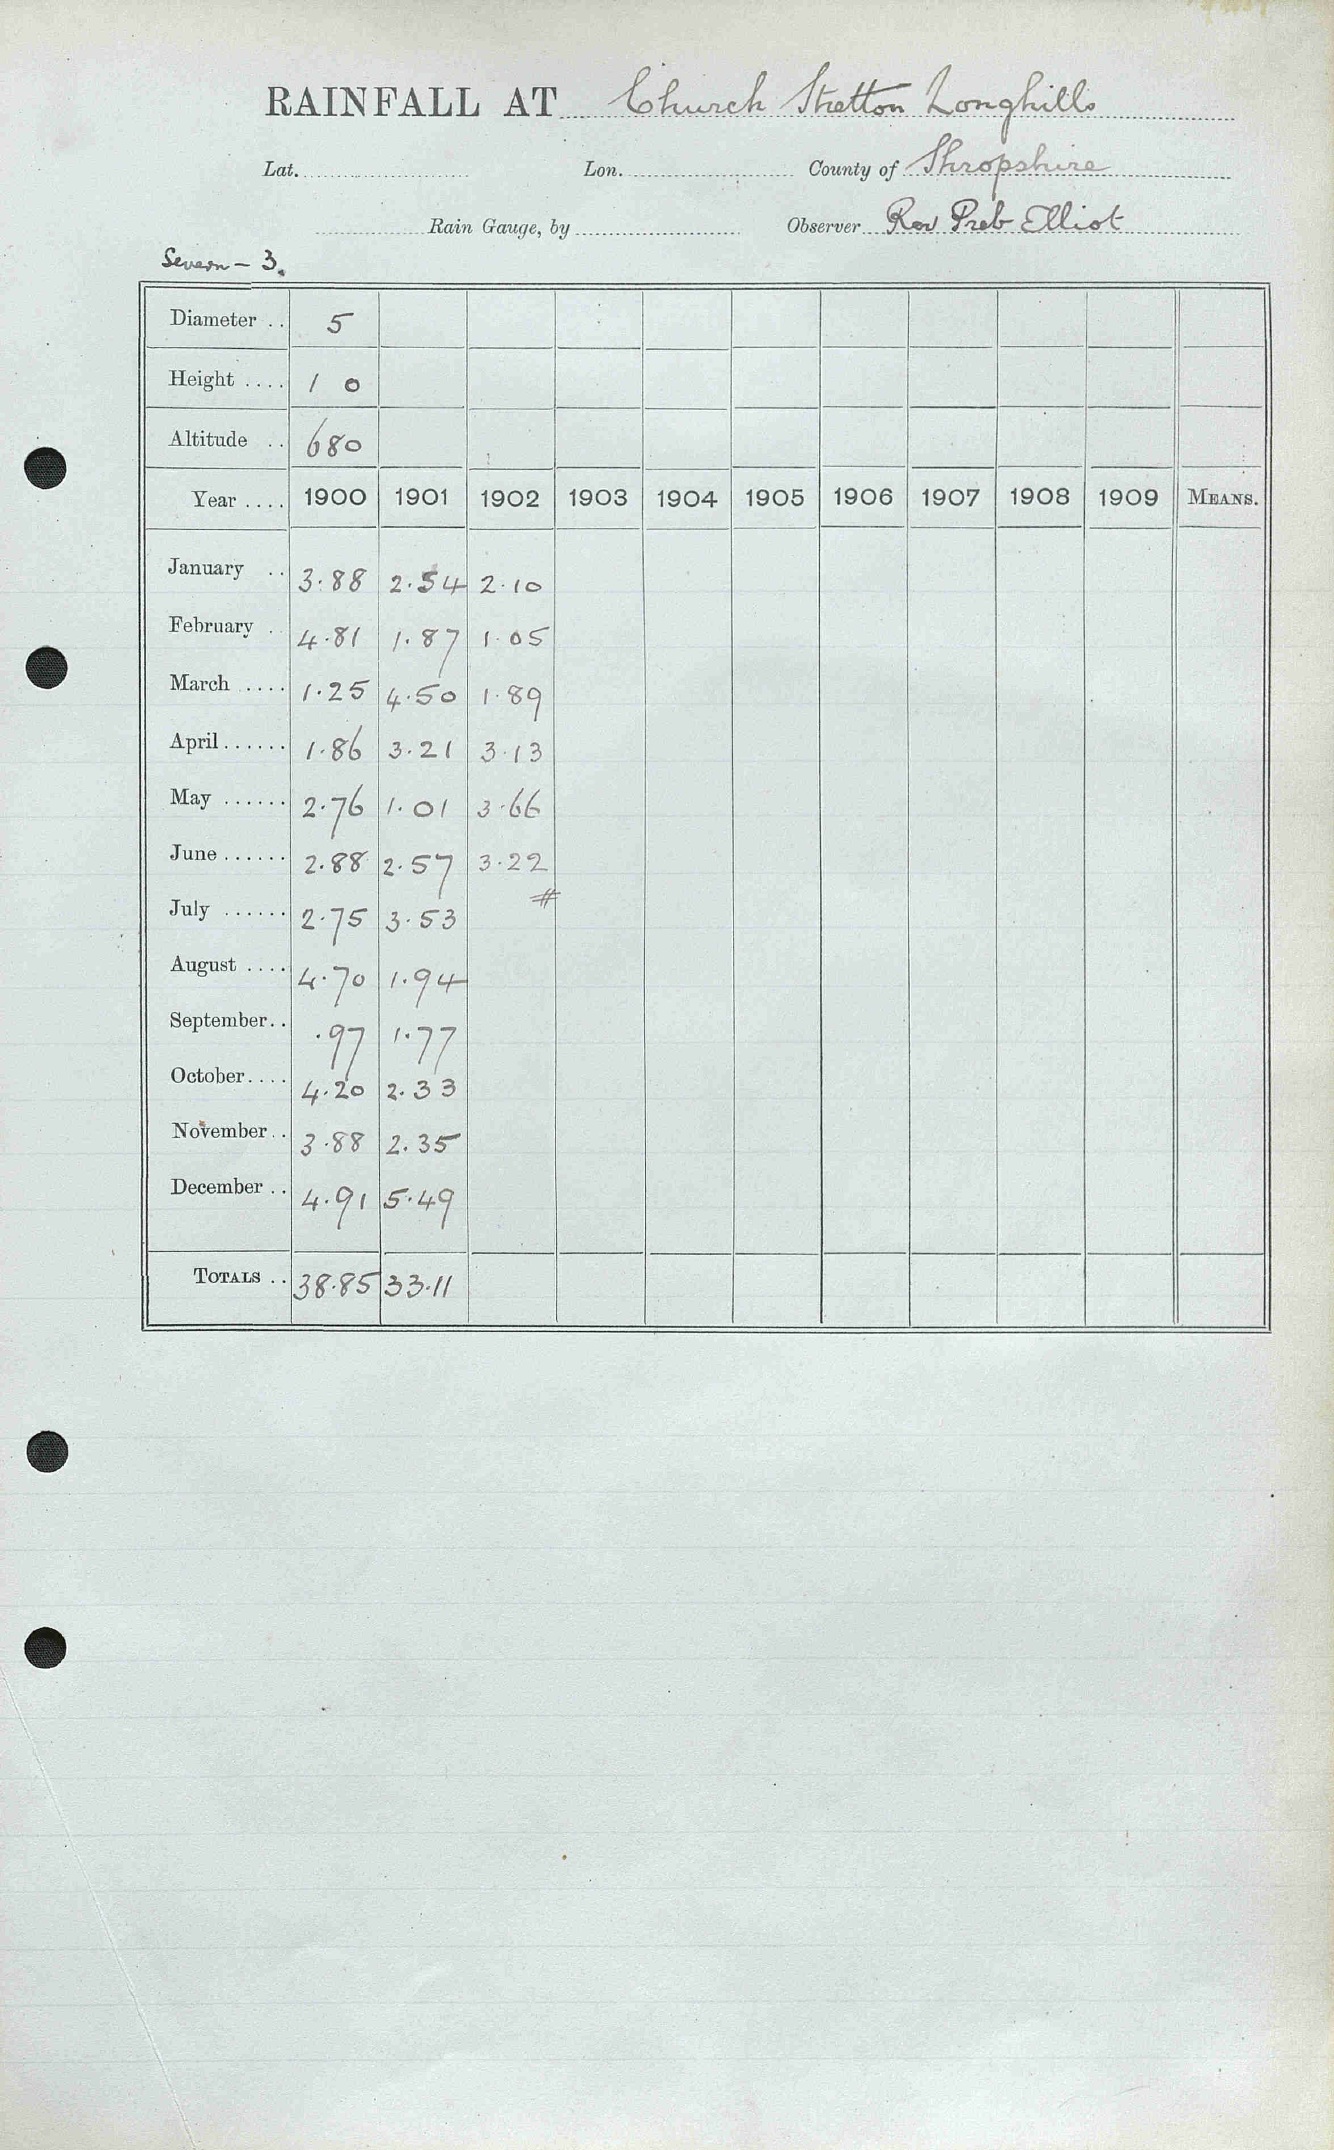 RAINFALL AT Church Stretton Longhills
Lat. Lon. County of Shropshire
Rain Gauge, by Observer Rev Preb Elliot
Severn - 3.
Diameter .. 5
Height .... 1 0
Altitude .. 680
Year .... 1900 1901 1902 1903 1904 1905 1906 1907 1908 1909 MEANS.
January .. 3.88 2.54 2.10
February . 4.81 1.87 1.05
March .... 1.25 4.50 1.89
April ...... 1.86 3.21 3.13
May ...... 2.76 1.01 3.66
June ...... 2.88 2.57 3.22
July ...... 2.75 3.53 #
August .... 4.70 1.94
September.. .97 1.77
October.... 4.20 2.33
November.. 3.88 2.35
December .. 4.91 5.49
TOTALS .. 38.85 33.11